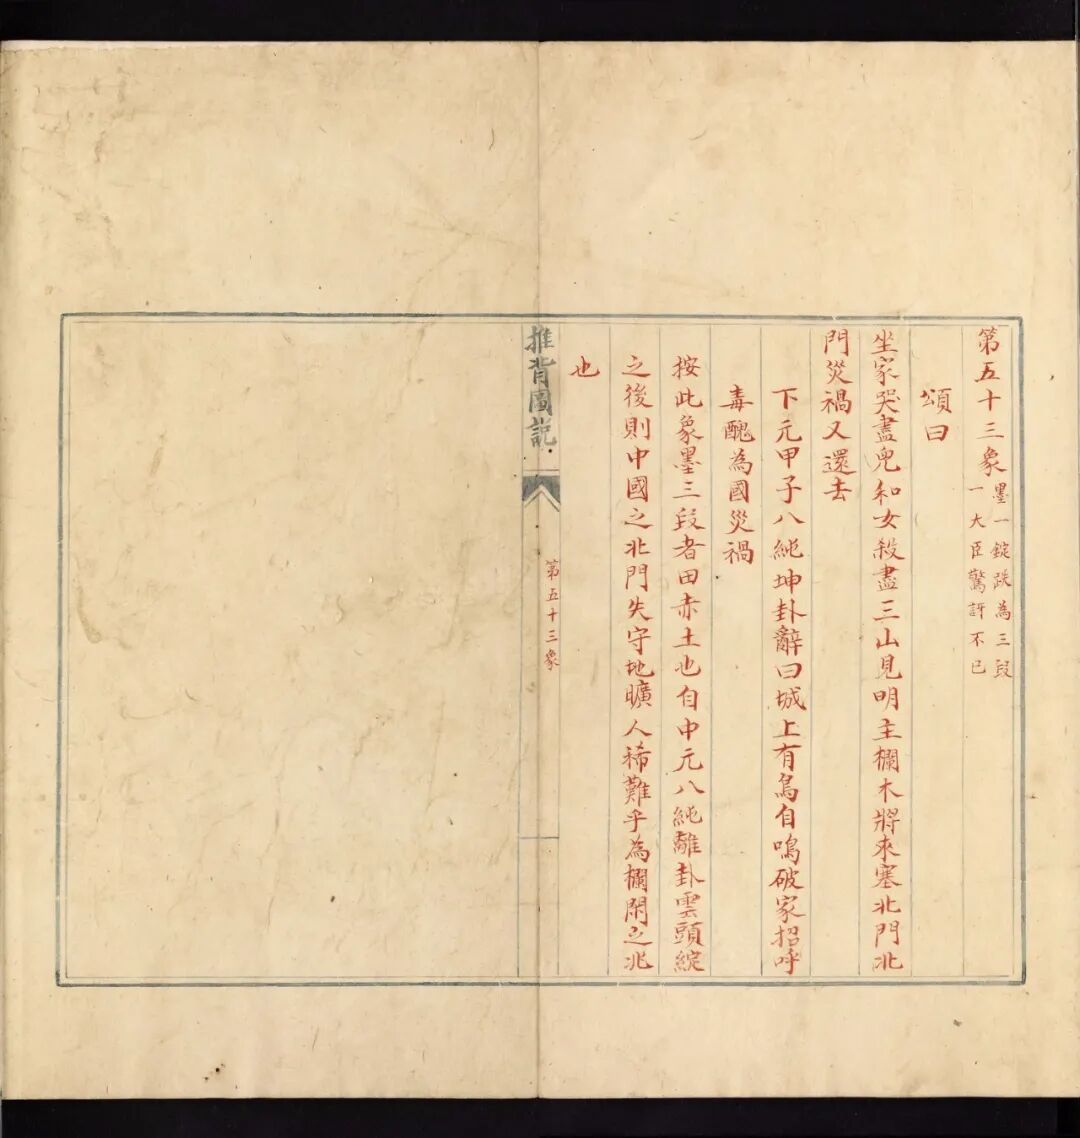 第五十三象
墨一錠跌為三段
一大臣驚訝不已
頌曰
坐家哭盡兒和女殺盡三山見明主欄木將來塞北門北
門災禍又還去
下元甲子八純坤卦辭曰城上有烏自鳴破家招呼
毒醜為國災禍
按此象墨三段者田赤土也自中元八純離卦雲頭綻
之後則中國之北門失守地曠人稀難乎為欄閑之兆
也
推背圖說
第五十三象